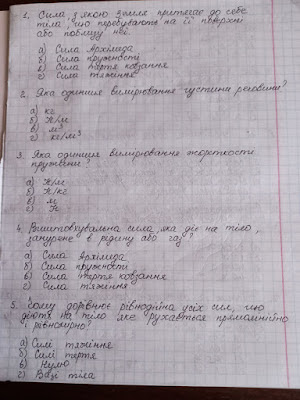 1. Сила, з якою Земля притягає до себе
тіла, що перебувають на її поверхні
або поблизу неї
а) Сила Архімеда
б) Сила пружності
в) Сила тертя ковзання
г) Сила тяжіння
2. Яка одиниця вимірювання густини речовини?
а) кг
б) Н/м
в) м
г) кг/м³
3. Яка одиниця вимірювання жорсткости
пружини?
а) Н/м
б) Н/кг
в) м
г) Н
4. Виштовхувальна сила, яка діє на тіло,
занурене в рідину або газ?
а) Сила Архімеда
б) Сила пружності
в) Сила тертя ковзання
г) Сила тяжіння
5. Чому дорівнює рівнодійна усіх сил, що
діють на тіло яке рухається прямолінійно
і рівномірно?
а) Силі тяжіння
б) Силі тертя
в) Нулю
г) Вазі тіла